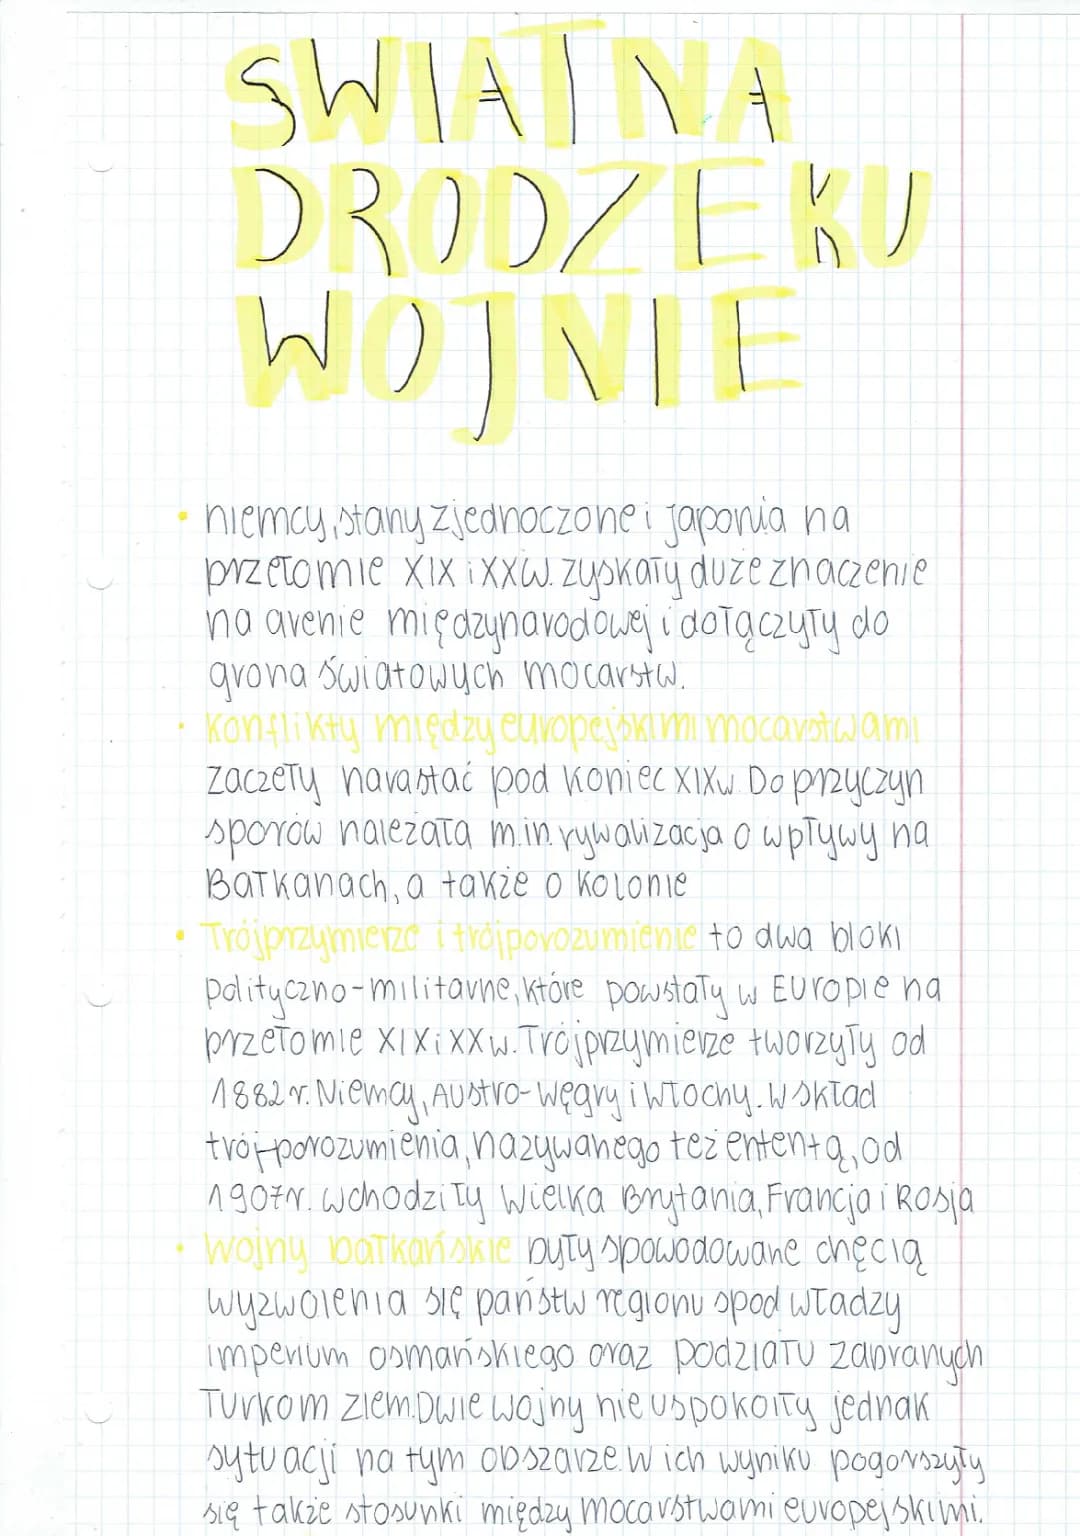 SWIAT NA
DRODZE KU
WOJNIE
• niemcy, stany zjednoczone i japonia na
przełomie XIX i XX w. zyskały duże znaczenie
na arenie międzynarodowej i dołączyły do
grona światowych mocarstw.
• Konflikty między europejskimi mocarstwami
zaczeły narastać pod koniec XIX w. Do przyczyn
sporów należała m.in. rywalizacja o wpływy na
Bałkanach, a także o kolonie
• Trójprzymierze i trójporozumienie to dwa bloki
polityczno-militarne, które powstały w Europie na
przełomie XIX i XX w. Trójprzymierze tworzyły od
1882 r. Niemcy, Austro-Węgry i Włochy. W skład
trój-porozumienia, nazywanego też ententą, od
1907 r. wchodziły Wielka Brytania, Francja i Rosja
• Wojny bałkańskie były spowodowane chęcią
wyzwolenia się państw regionu spod władzy
imperium osmańskiego oraz podziału zabranych
Turkom ziem. Dwie wojny nie uspokoiły jednak
sytuacji na tym obszarze. W ich wyniku pogorszyły
się także stosunki między mocarstwami europejskimi.